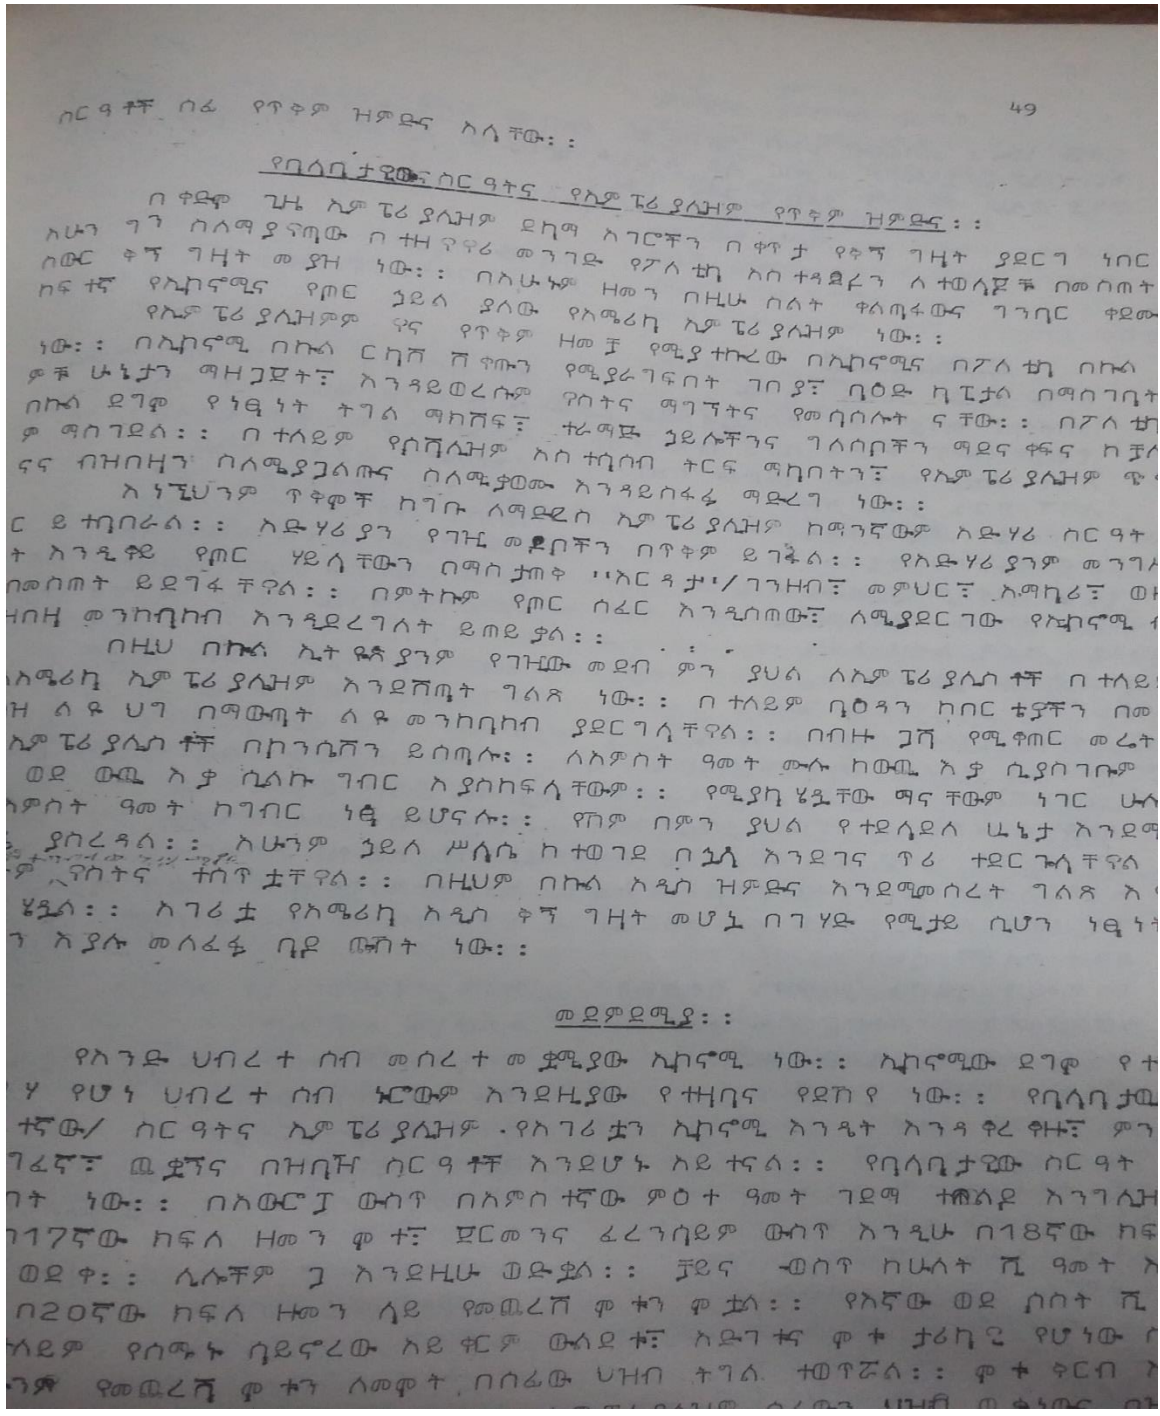 49
ስርዓቶች ሰፊ የጥቅም ዝምድና አላቸው፡፡
የባላባታዊው ስርዓትና የኢምፔሪያሊዝም የጥቅም ዝምድና፡፡
በቀድሞ ጊዜ ኢምፔሪያሊዝም ደካማ አገሮችን በቀጥታ የቅኝ ግዛት ያደርግ ነበር
አሁን ግን ስለማያዋጣው በተዘዋዋሪ መንገድ የፖለቲካ አስተዳደሩን ለተወላጆቹ በመስጠት
ስውር ቅኝ ግዛት መያዝ ነው፡፡ በአሁኑም ዘመን በዚሁ ስልት ቀልጣፋውና ግንባር ቀደሙ
ከፍተኛ የኢኮኖሚና የጦር ኃይል ያለው የአሜሪካ ኢምፔሪያሊዝም ነው፡፡
የኢምፔሪያሊዝምም ዋና የጥቅም ዘመቻ የሚያተኩረው በኢኮኖሚና በፖለቲካ በኩል
ነው፡፡ በኢኮኖሚ በኩል ርካሽ ሸቀጡን የሚያራግፍበት ገበያ፣ ባዕድ ካፒታል በማስገባት
ምቹ ሁኔታን ማዘጋጀት፣ እንዳይወረሱም ዋስትና ማግኘትና የመሳሰሉት ናቸው፡፡ በፖለቲካ
በኩል ደግሞ የነፃነት ትግል ማክሸፍ፣ ተራማጅ ኃይሎችንና ግለሰቦችን ማደናቀፍና ከቻለ
ም ማስገደል፡፡ በተለይም የሶሻሊዝም አስተሳሰብ ትርፍ ማካበትን፣ የኢምፔሪያሊዝም
ናና ብዝበዛን ስለሚያጋልጡና ስለሚቃወሙ እንዳይስፋፋ ማድረግ ነው፡፡
እነኚህንም ጥቅሞች ከግቡ ለማድረስ ኢምፔሪያሊዝም ከማንኛውም አድሃሪ ስርዓት
ር ይተባበራል፡፡ አድሃሪያን የገዢ መደቦችን በጥቅም ይገፋል፡፡ የአድሃሪያንም
ት እንዲቆይ የጦር ሃይላቸውን በማስታጠቅ "እርዳታ"/ገንዘብ፣ መምህር፣ አማካሪ፣
በመስጠት ይደግፋቸዋል፡፡ በምትኩም የጦር ሰፈር እንዲሰጠው፣ ለሚያደርገው የኢኮኖሚ
ዝበዛ መንከባከብ እንዲደረግለት ይጠይቃል፡፡
በዚህ በኩል ኢትዮጵያንም የገዢው መደብ ምን ያህል ለኢምፔሪያሊስቶች በተለይ
ለአሜሪካ ኢምፔሪያሊዝም እንደሸጣት ግልጽ ነው፡፡ በተለይም ባዕዳን ከበርቴዎችን በመ
ዝ ልዩ ህግ በማውጣት ልዩ መንከባከብ ያደርግላቸዋል፡፡ በብዙ ጋሻ የሚቆጠር መሬት
ኢምፔሪያሊስቶች በኮንሴሽን ይሰጣሉ፡፡ ለአምስት ዓመት ሙሉ ከውጪ እቃ ሲያስገቡም
ወደ ውጪ እቃ ሲልኩ ግብር አያስከፍላቸውም፡፡ የሚያካሄዷቸው ማናቸውም ነገር ሁሉ
አምስት ዓመት ከግብር ነፃ ይሆናሉ፡፡ የሸም በምን ያህል የተደላደለ ሁኔታ እንደ
ያስረዳል፡፡ አሁንም ኃይለ ሥላሴ ከተወገደ በኋላ እንደገና ጥሪ ተደርጎላቸዋል
ም ዋስትና ተሰጥቷቸዋል፡፡ በዚህም በኩል አዲስ ዝምድና እንደሚመሰረት ግልጽ
ሄዷል፡፡ አገሪቷ የአሜሪካ አዲስ ቅኝ ግዛት መሆኗ በገሃድ የሚታይ ሲሆን ነፃነት
ን እያሉ መለፈፉ ባዶ ጩኸት ነው፡፡
መደምደሚያ፡፡
የአንድ ህብረተሰብ መሰረተ መቋሚያው ኢኮኖሚ ነው፡፡ ኢኮኖሚው ደግሞ የተ
ሃ የሆነ ህብረተሰብ ኑሮውም እንደዚያው የተዛባና የደኸየ ነው፡፡ የባላባታዊ
ተኛው/ ስርዓትና ኢምፔሪያሊዝም የአገሪቷን ኢኮኖሚ እንዴት እንዳቆረቆዙ፣ ምን
ገፈኛ፣ ጨቋኝና በዝባዥ ስርዓቶች እንደሆኑ አይተናል፡፡ የባላባታዊው ስርዓት
ነው፡፡ በአውሮፓ ውስጥ በአምስተኛው ምዕተ ዓመት ገደማ ተወልዶ እንግሊዝ
በ17ኛው ክፍለ ዘመን ሞተ፣ ጀርመንና ፈረንሳይም ውስጥ እንዲሁ በ18ኛው ክፍ
ወደቀ፡፡ ሌሎችም ጋ እንደዚሁ ወድቋል፡፡ ቻይና ውስጥ ከሁለት ሺ ዓመት
በ20ኛው ክፍለ ዘመን ላይ የመጨረሻ ሞቱን ሞቷል፡፡ የእኛው ወደ ሶስት ሺ
ለይም የሰማኑ ሳይኖረው አይቀርም ውልደቱ፣ እድገቱና ሞቱ ታሪካዊ የሆነው
የመጨረሻ ሞቱን ለመሞት በሰፊው ህዝብ ትግል ተወጥሯል፡፡ ሞቱ ቅርብ